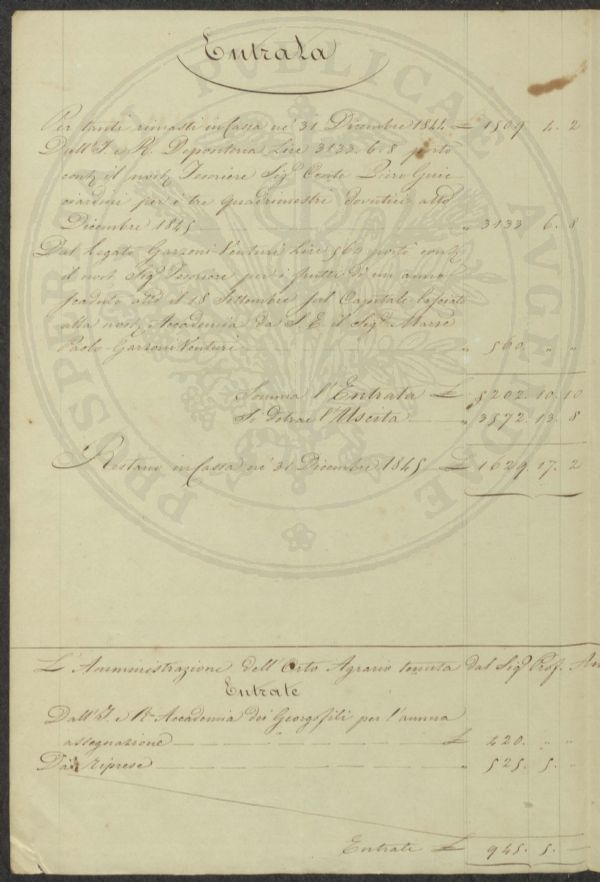 Entrata
Per tanti rimasti in Cassa nè 31 Dicembre 1844 £ 1509. 4. 2
Dall'I. e R. Depositeria Lire 3133. 6. 8 portò
cont. il nostro Tesoriere Sig.r Conte Piero Guic-
ciardini per i tre quadrimestri dovutici a tutto
Dicembre 1845 " 3133. 6. 8
Dal Legato Garzoni Venturi Lire 560 portò cont.
il nost. Sig.r Tesoriere per i frutti di un anno
scaduto al dì 18 Settembre sul Capitale lasciato
alla nost. Accademia da S. E. il Sig.r March.
Paolo Garzoni Venturi " 560. " "
Somma l'Entrata £ 5202. 10. 10
Si detrae l'Uscita " 3572. 13. 8
Restano in Cassa nè 31 Dicembre 1845 £ 1629. 17. 2
L'Amministrazione dell'Orto Agrario tenuta dal Sig.r Prof.
Entrate
Dall'I. e R. Accademia dei Georgofili per l'annua
assegnazione £ 420. " "
Da Riprese " 525. 5. "
Entrate £ 945. 5. —
PROSPERITATI PUBLICAE AUGENDAE